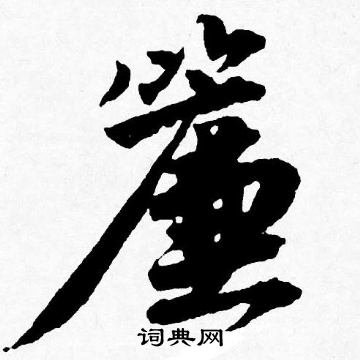 簾
词典网